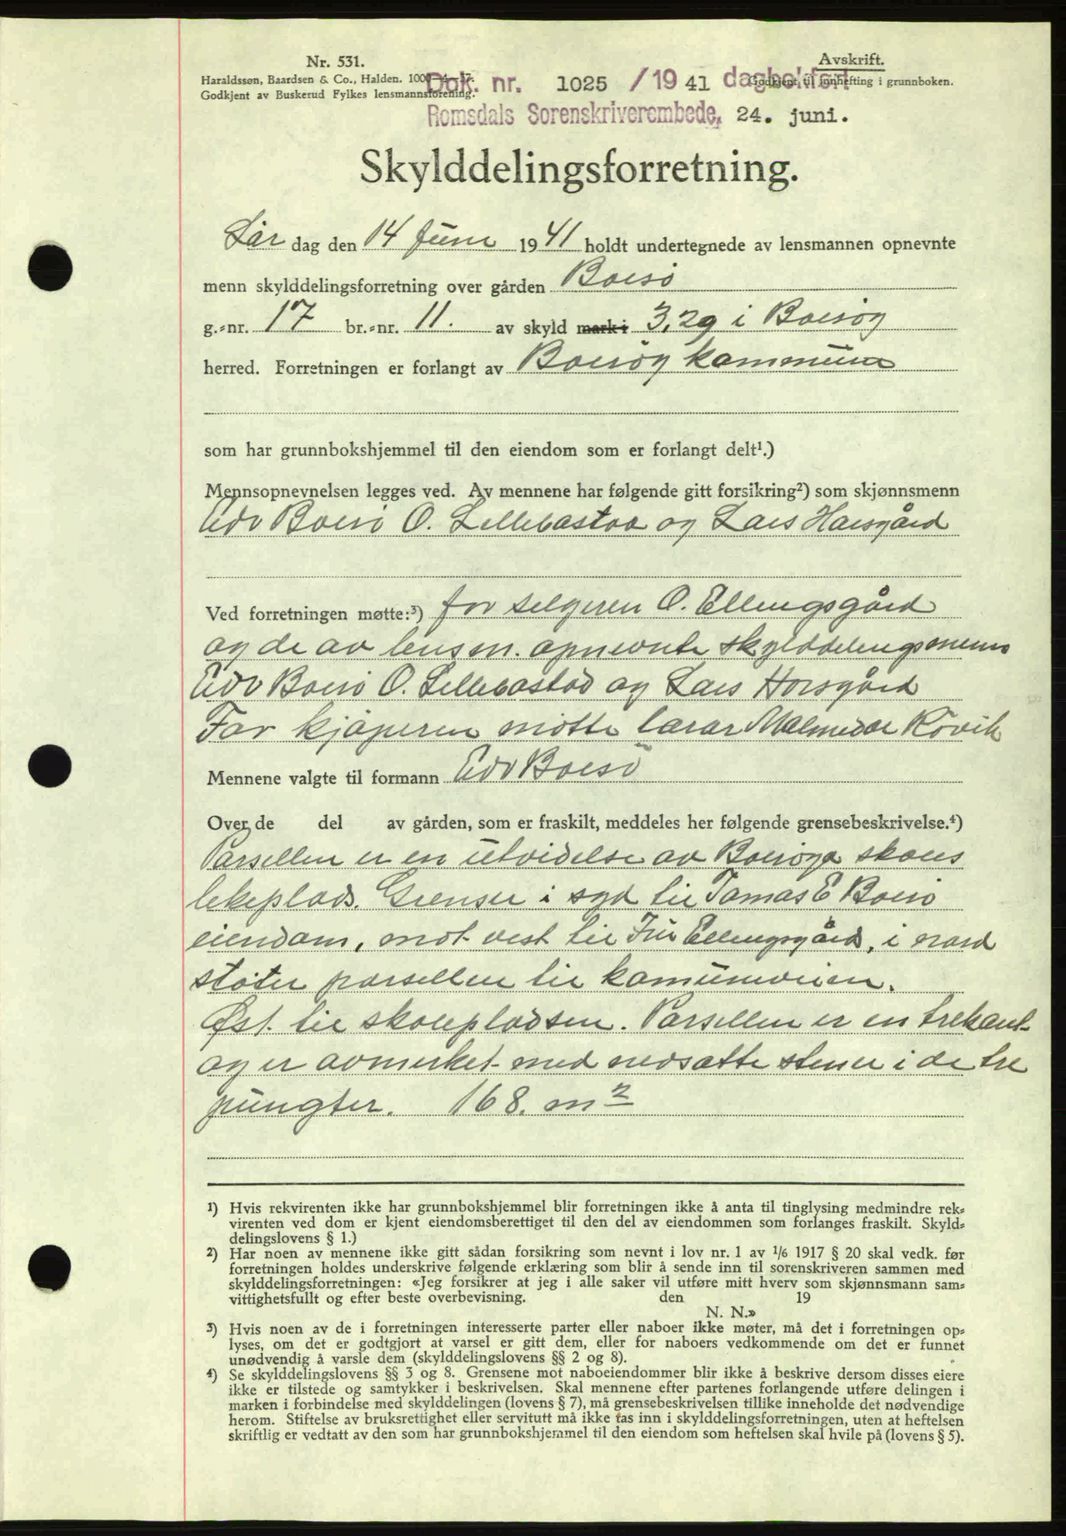 Nr. 531.
Haraldssøn, Baardsen & Co., Halden. 1000–4–37.
Godkjent av Buskerud Fylkes lensmannsforening.
Avskrift.
Godkjent til innhefting i grunnboken.
Dok. nr. 1025 /1941 dagbokført
Romsdals Sorenskriverembede, 24. juni.
Skylddelingsforretning.
Lår dag den 14 Juni 1941 holdt undertegnede av lensmannen opnevnte
menn skylddelingsforretning over gården Bolsø
g.-nr. 17 br.-nr. 11. av skyld mark i 3,29 i Bolsøy
herred. Forretningen er forlangt av Bolsøy kommune
som har grunnbokshjemmel til den eiendom som er forlangt delt¹.)
Mennsopnevnelsen legges ved. Av mennene har følgende gitt forsikring²) som skjønnsmenn
Edv Bolsø O. Lillebostad og Lars Horsgård
Ved forretningen møtte:³) for selgeren O. Ellingsgård
og de av lensm. opnevnte skylddelingsmenn
Edv Bolsø O. Lillebostad og Lars Horsgård
For kjøperen møtte lærar Malmedal Røvik
Mennene valgte til formann Edv Bolsø
Over de del av gården, som er fraskilt, meddeles her følgende grensebeskrivelse.⁴)
Parsellen er en utvidelse av Bolsøya skoles
lekeplads. Grenser i syd til Tomas E Bolsø
eiendom, mot vest til Ellingsgård, i nord
støter parsellen til komunveien.
Øst til skolepladsen. Parsellen er en trekant
og er avmerket med nedsatte stener i de tre
pungter. 168. m²
¹) Hvis rekvirenten ikke har grunnbokshjemmel blir forretningen ikke å anta til tinglysing medmindre rek-
virenten ved dom er kjent eiendomsberettiget til den del av eiendommen som forlanges fraskilt. Skyld-
delingslovens § 1.)
²) Har noen av mennene ikke gitt sådan forsikring som nevnt i lov nr. 1 av 1/6 1917 § 20 skal vedk. før
forretningen holdes underskrive følgende erklæring som blir å sende inn til sorenskriveren sammen med
skylddelingsforretningen: «Jeg forsikrer at jeg i alle saker vil utføre mitt hverv som skjønnsmann sam-
vittighetsfullt og efter beste overbevisning. den 19
N. N.»
³) Hvis noen av de i forretningen interesserte parter eller naboer ikke møter, må det i forretningen op-
lyses, om det er godtgjort at varsel er gitt dem, eller for naboers vedkommende om det er funnet
unødvendig å varsle dem (skylddelingslovens §§ 2 og 8).
⁴) Se skylddelingslovens §§ 3 og 8. Grensene mot naboeiendommer blir ikke å beskrive dersom disses eiere
ikke er tilstede og samtykker i beskrivelsen. Skal mennene efter partenes forlangende utføre delingen i
marken i forbindelse med skylddelingen (lovens § 7), må grensebeskrivelsen tillike inneholde det nødvendige
herom. Stiftelse av bruksrettighet eller servitutt må ikke tas inn i skylddelingsforretningen, uten at heftelsen
skriftlig er vedtatt av den som har grunnbokshjemmel til den eiendom som heftelsen skal hvile på (lovens § 5).